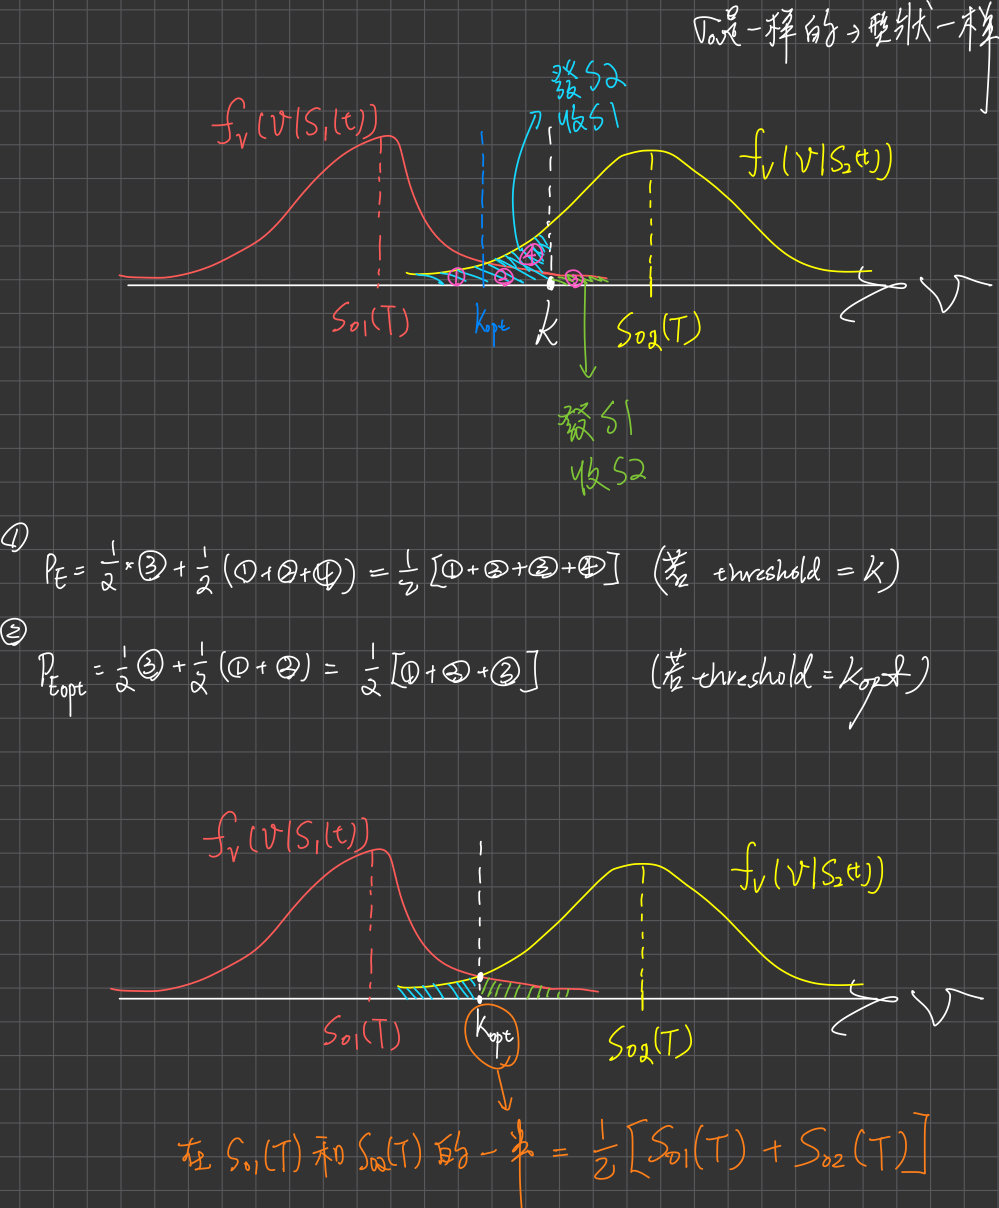 σ₀是一样的→型狀一样
發S2
收S1
f_V(V|S₁(t))
f_V(V|S₂(t))
① ② ④ ③
S₀₁(T) K_opt K S₀₂(T) V
發S1
收S2
①
P_E = 1/2 * ③ + 1/2 (①+②+④) = 1/2 [①+②+③+④] (若 threshold = K)
②
P_Eopt = 1/2 ③ + 1/2 (①+②) = 1/2 [①+②+③] (若 threshold = K_opt)
f_V(V|S₁(t))
f_V(V|S₂(t))
S₀₁(T) K_opt S₀₂(T) V
在 S₀₁(T) 和 S₀₂(T) 的一半 = 1/2 [S₀₁(T) + S₀₂(T)]